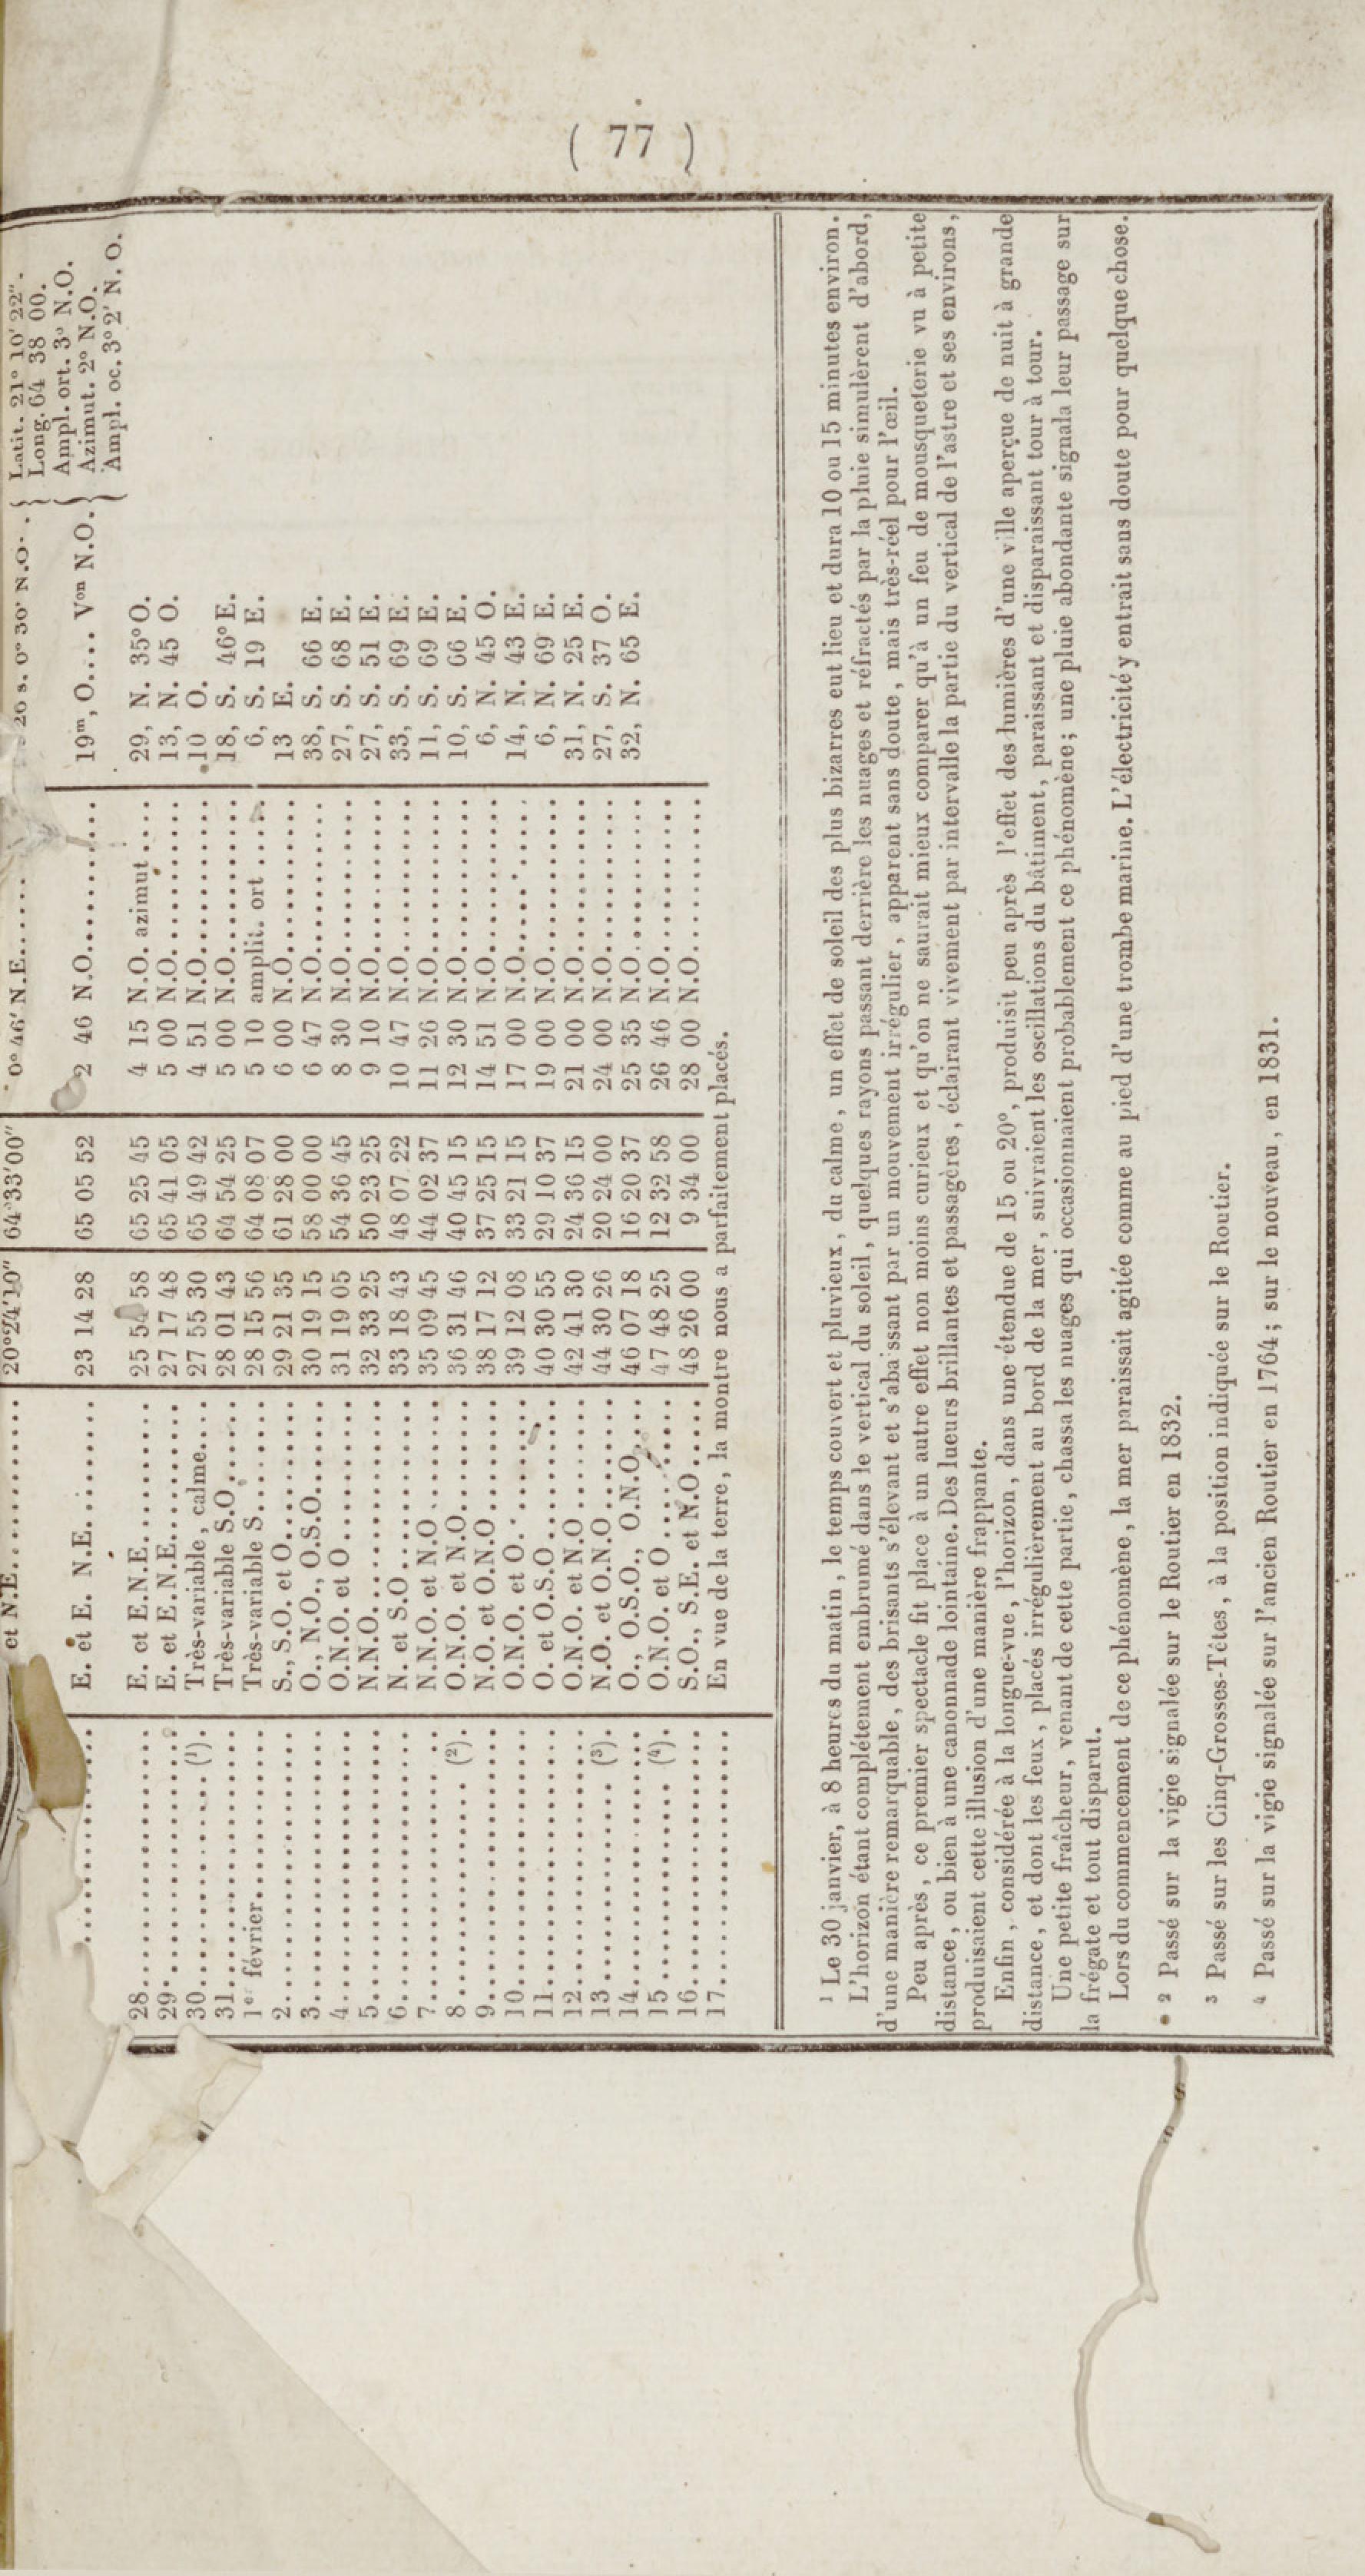 ( 77 )
et N.E.......... 20°24'10" 64°33'00" 0° 46' N.E..... 26 s. 0° 30' N.O. . { Latit. 21° 10' 22".
Long. 64 38 00.
E. et E. N.E.......... 23 14 28 65 05 52 2 46 N.O.......... 19m, O.... Von N.O. { Ampl. ort. 3° N.O.
Azimut. 2° N.O.
Ampl. oc. 3° 2' N. O.
28.......... E. et E.N.E.......... 25 54 58 65 25 45 4 15 N.O. azimut .... 29, N. 35° O.
29.......... E. et E.N.E.......... 27 17 48 65 41 05 5 00 N.O.......... 13, N. 45 O.
30.......... (1). Très-variable, calme.... 27 55 30 65 49 42 4 51 N.O.......... 10 O.
31.......... Très-variable S.O...... 28 01 43 64 54 25 5 00 N.O.......... 18, S. 46° E.
1er février.......... Très-variable S....... 28 15 56 64 08 07 5 10 amplit. ort ..... 6, S. 19 E.
2.......... S., S.O. et O.......... 29 21 35 61 28 00 6 00 N.O.......... 13 E.
3.......... O., N.O., O.S.O....... 30 19 15 58 00 00 6 47 N.O.......... 38, S. 66 E.
4.......... O.N.O. et O .......... 31 19 05 54 36 45 8 30 N.O.......... 27, S. 68 E.
5.......... N.N.O. .......... 32 33 25 50 23 25 9 10 N.O.......... 27, S. 51 E.
6.......... N. et S.O .......... 33 18 43 48 07 22 10 47 N.O.......... 33, S. 69 E.
7.......... N.N.O. et N.O ....... 35 09 45 44 02 37 11 26 N.O.......... 11, S. 69 E.
8.......... (2). O.N.O. et N.O....... 36 31 46 40 45 15 12 30 N.O.......... 10, S. 66 E.
9.......... N.O. et O.N.O ....... 38 17 12 37 25 15 14 51 N.O.......... 6, N. 45 O.
10.......... O.N.O. et O.......... 39 12 08 33 21 15 17 00 N.O.......... 14, N. 43 E.
11.......... O. et O.S.O.......... 40 30 55 29 10 37 19 00 N.O.......... 6, N. 69 E.
12.......... O.N.O. et N.O ....... 42 41 30 24 36 15 21 00 N.O.......... 31, N. 25 E.
13.......... (3). N.O. et O.N.O....... 44 30 26 20 24 00 24 00 N.O.......... 27, S. 37 O.
14.......... O., O.S.O., O.N.O.... 46 07 18 16 20 37 25 35 N.O.......... 32, N. 65 E.
15.......... (4). O.N.O. et O ....... 47 48 25 12 32 58 26 46 N.O..........
16.......... S.O., S.E. et N.O ..... 48 26 00 9 34 00 28 00 N.O..........
17.......... En vue de la terre, la montre nous a parfaitement placés.
1 Le 30 janvier, à 8 heures du matin, le temps couvert et pluvieux, du calme, un effet de soleil des plus bizarres eut lieu et dura 10 ou 15 minutes environ.
L'horizon étant complétement embrumé dans le vertical du soleil, quelques rayons passant derrière les nuages et réfractés par la pluie simulèrent d'abord,
d'une manière remarquable, des brisants s'élevant et s'abaissant par un mouvement irrégulier, apparent sans doute, mais très-réel pour l'œil.
Peu après, ce premier spectacle fit place à un autre effet non moins curieux et qu'on ne saurait mieux comparer qu'à un feu de mousqueterie vu à petite
distance, ou bien à une canonnade lointaine. Des lueurs brillantes et passagères, éclairant vivement par intervalle la partie du vertical de l'astre et ses environs,
produisaient cette illusion d'une manière frappante.
Enfin, considérée à la longue-vue, l'horizon, dans une étendue de 15 ou 20°, produisit peu après l'effet des lumières d'une ville aperçue de nuit à grande
distance, et dont les feux, placés irrégulièrement au bord de la mer, suivraient les oscillations du bâtiment, paraissant et disparaissant tour à tour.
Une petite fraîcheur, venant de cette partie, chassa les nuages qui occasionnaient probablement ce phénomène; une pluie abondante signala leur passage sur
la frégate et tout disparut.
Lors du commencement de ce phénomène, la mer paraissait agitée comme au pied d'une trombe marine. L'électricité y entrait sans doute pour quelque chose.
2 Passé sur la vigie signalée sur le Routier en 1832.
3 Passé sur les Cinq-Grosses-Têtes, à la position indiquée sur le Routier.
4 Passé sur la vigie signalée sur l'ancien Routier en 1764; sur le nouveau, en 1831.